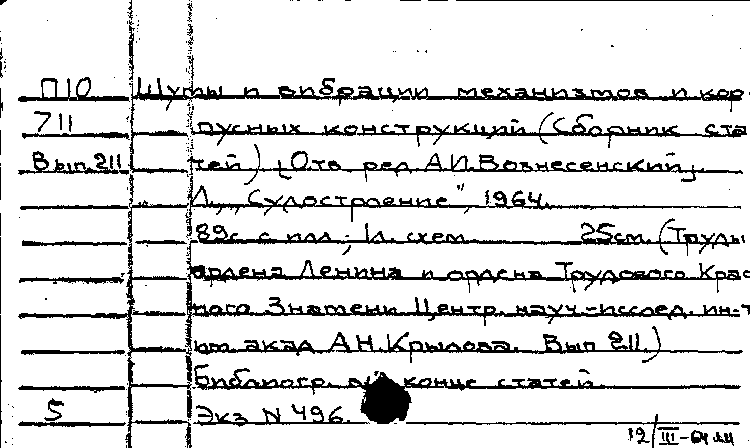 П10 Шумы и вибрации механизмов и кор-
711 пусных конструкций (Сборник ста
Вып.211 тей) [Отв ред. А.И.Вознесенский]
Л., „Судостроение", 1964.
89с. с илл.; 1л. схем 25см. (Труды
ордена Ленина и ордена Трудового Крас
ного Знамени Центр. науч-исслед. ин-т
им. акад. А.Н.Крылова. Вып 211.)
Библиогр. в конце статей
5 Экз N 496.
12/III-64